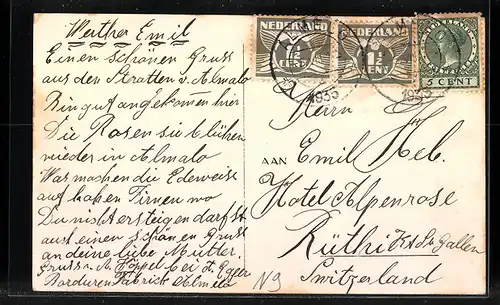 Werther Emil
Einen schönen Gruss
aus den Stratten v. Almalo
Bin gut angekomen hier
Die Rosen sie blühen
wieder in Almalo
Was machen die Edeweise
auf hohen Firnen wo
Du nicht ersteigen darfst
auch einen schönen Gruss
an deine liebe Mutter.
Gruss v. A. Töppel bei d. Egla
Borduren Fabriek Almelo
NEDERLAND
1½ CENT
NEDERLAND
1½ CENT
5 CENT
1935
1935
Herrn
AAN
Emil Heb.
Hotel Alpenrose
Rüthi Kt. St. Gallen
Switzerland
N9